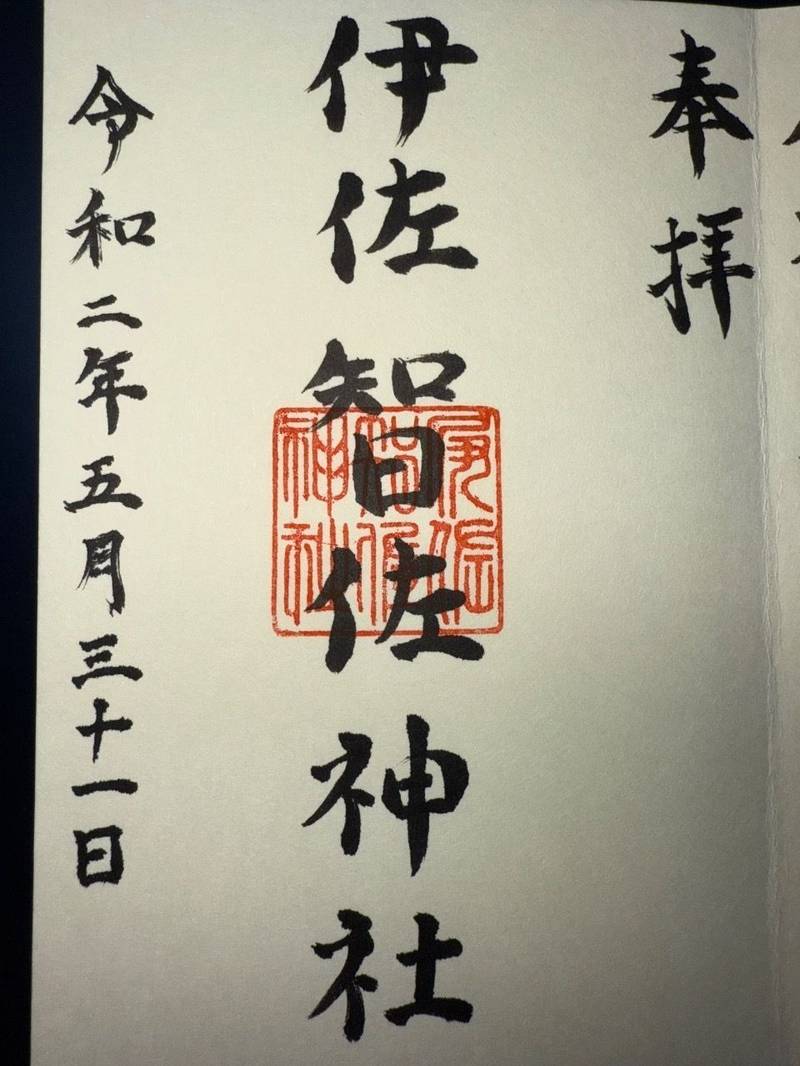 奉拝
伊佐智佐神社
令和二年五月三十一日